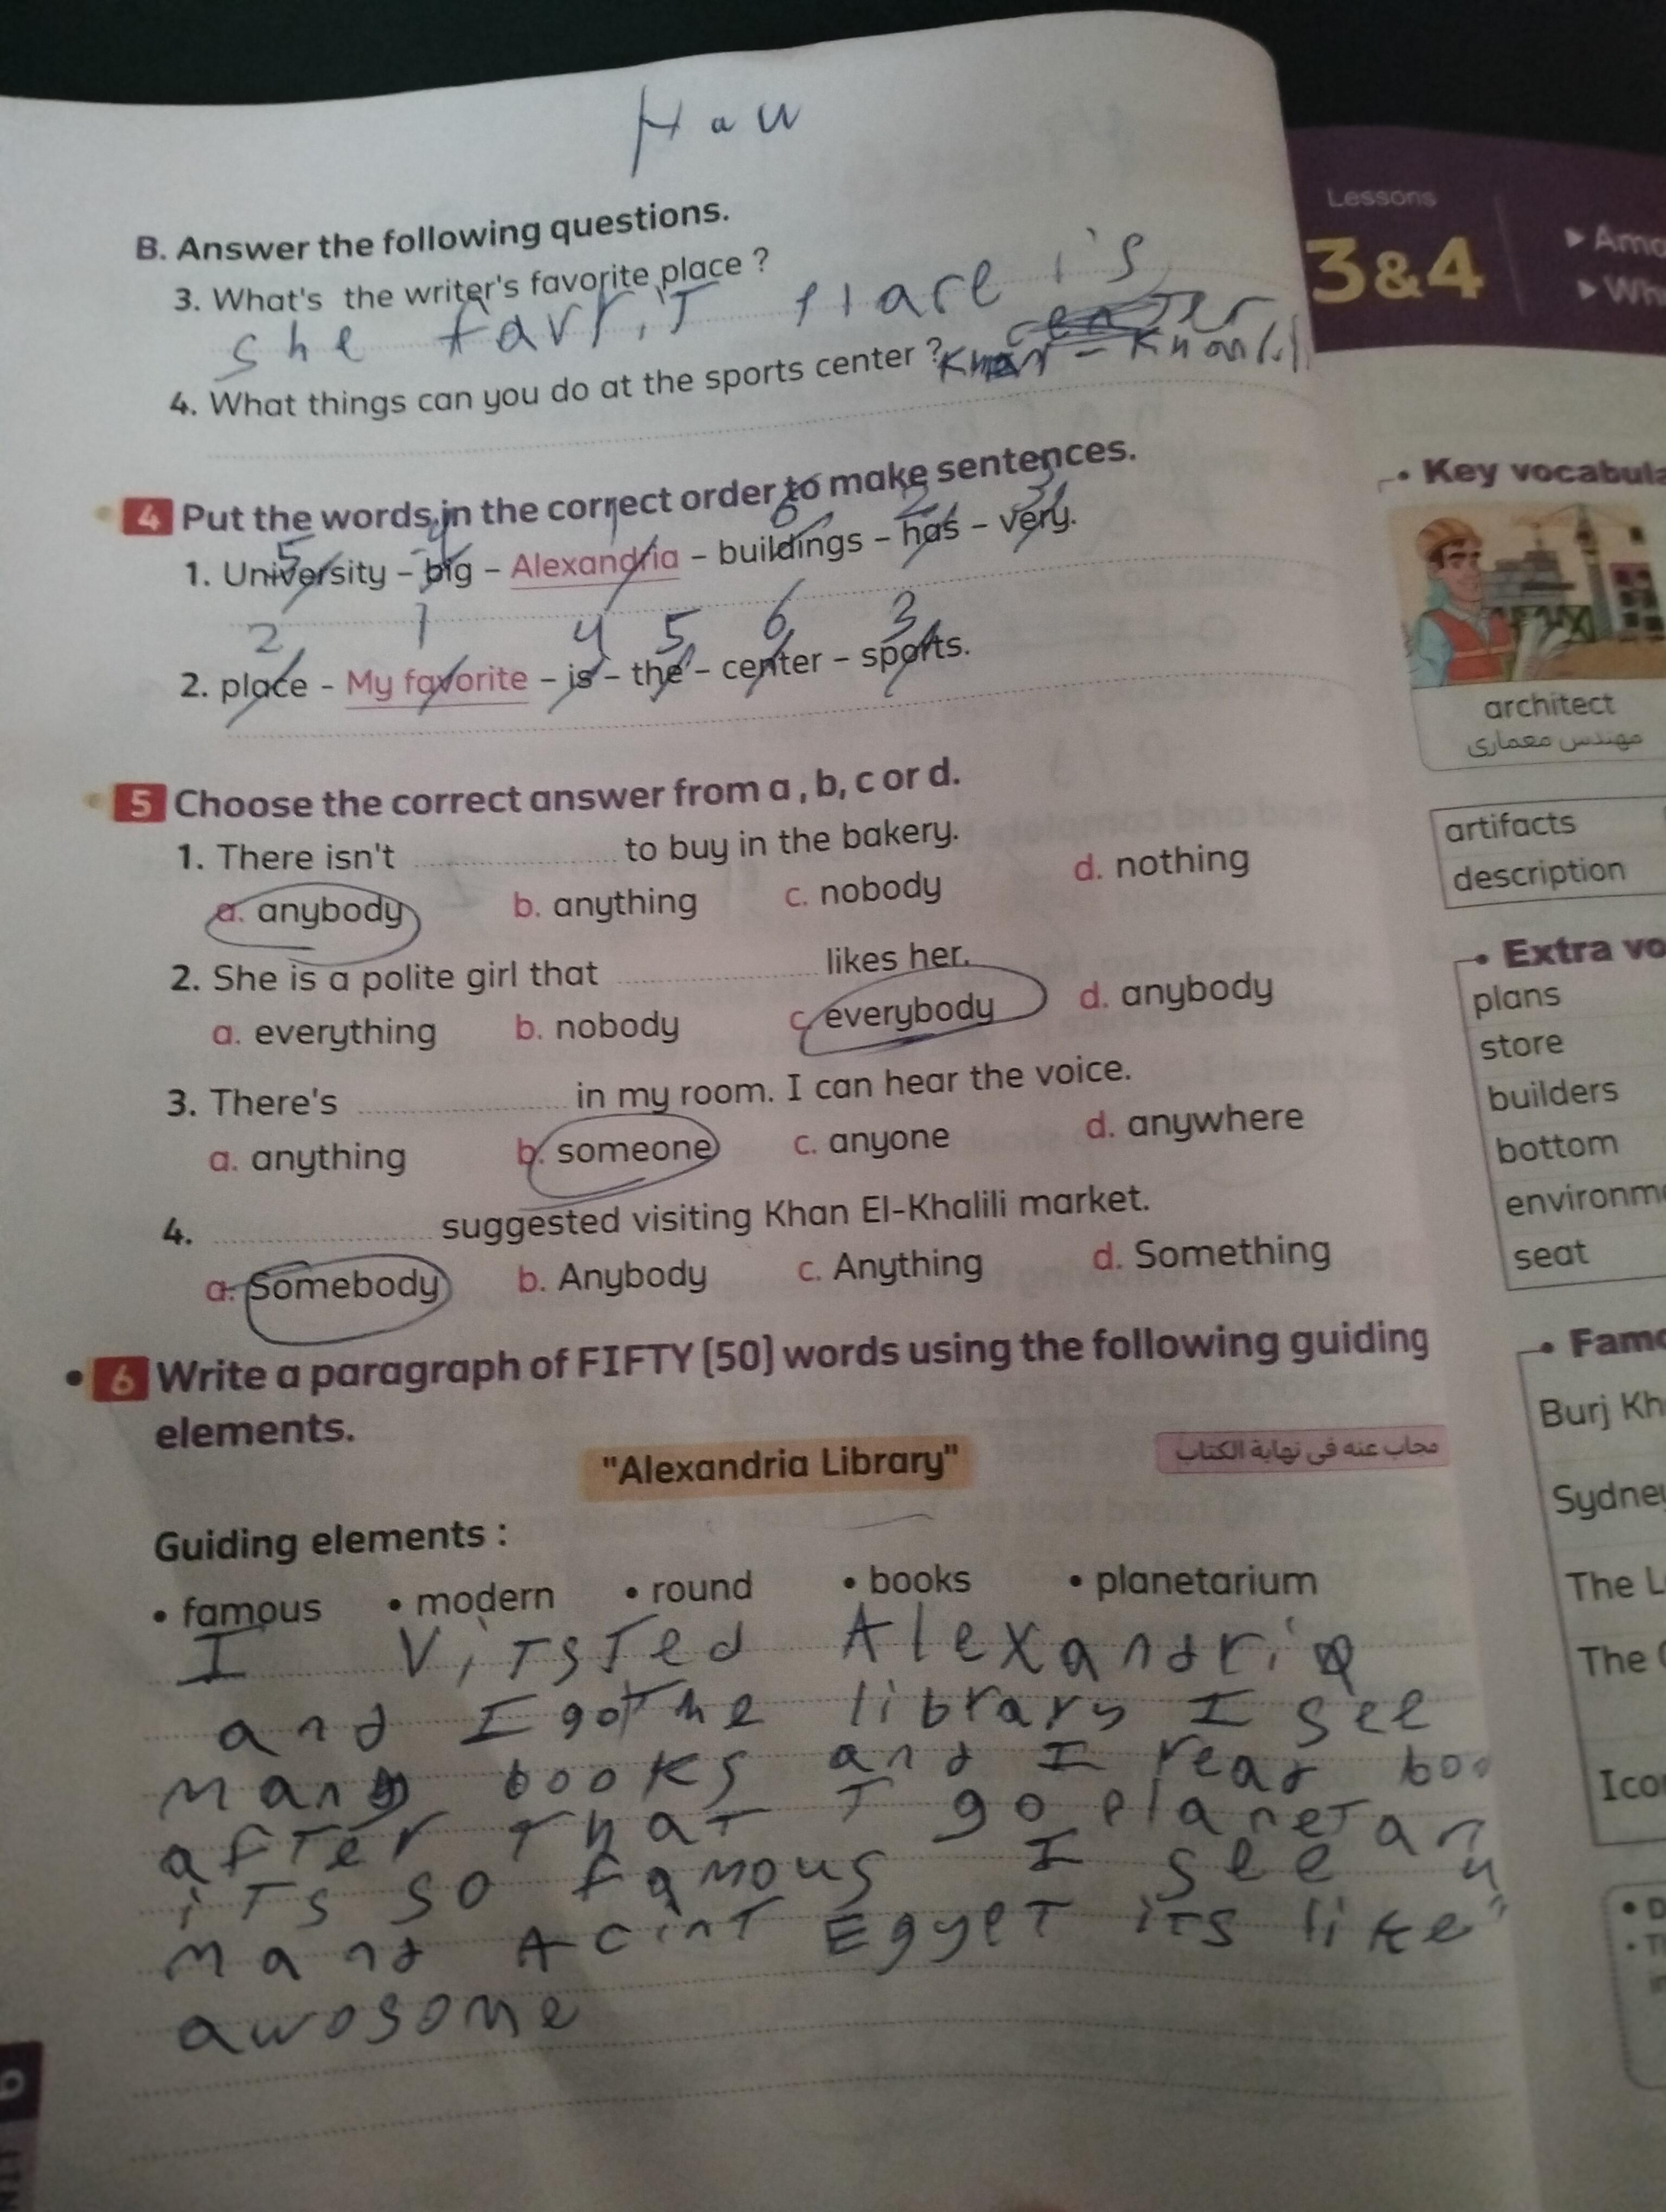 Haw
B. Answer the following questions.
3. What's the writer's favorite place ?
she favrit place is
center
4. What things can you do at the sports center ?
4 Put the words in the correct order to make sentences.
5 4 1 6 2 3
1. University – big – Alexandria – buildings – has – very.
2 1 4 5 6 3
2. place – My favorite – is – the – center – sports.
5 Choose the correct answer from a , b, c or d.
1. There isn't ........ to buy in the bakery.
a. anybody b. anything c. nobody d. nothing
2. She is a polite girl that ........ likes her.
a. everything b. nobody c. everybody d. anybody
3. There's ........ in my room. I can hear the voice.
a. anything b. someone c. anyone d. anywhere
4. ........ suggested visiting Khan El-Khalili market.
a. Somebody b. Anybody c. Anything d. Something
6 Write a paragraph of FIFTY (50) words using the following guiding
elements.
"Alexandria Library"
مجاب عنه في نهاية الكتاب
Guiding elements :
• famous • modern • round • books • planetarium
I Vitsted Alexandria
and I go the library I see
many books and I read boo
after that I go planetar
its so famous I see
Acint Egypt its like
awosome
Lessons
3&4
Key vocabula
architect
مهندس معماري
artifacts
description
Extra vo
plans
store
builders
bottom
environm
seat
Famo
Burj Kh
Sydney
The L
The
Ico